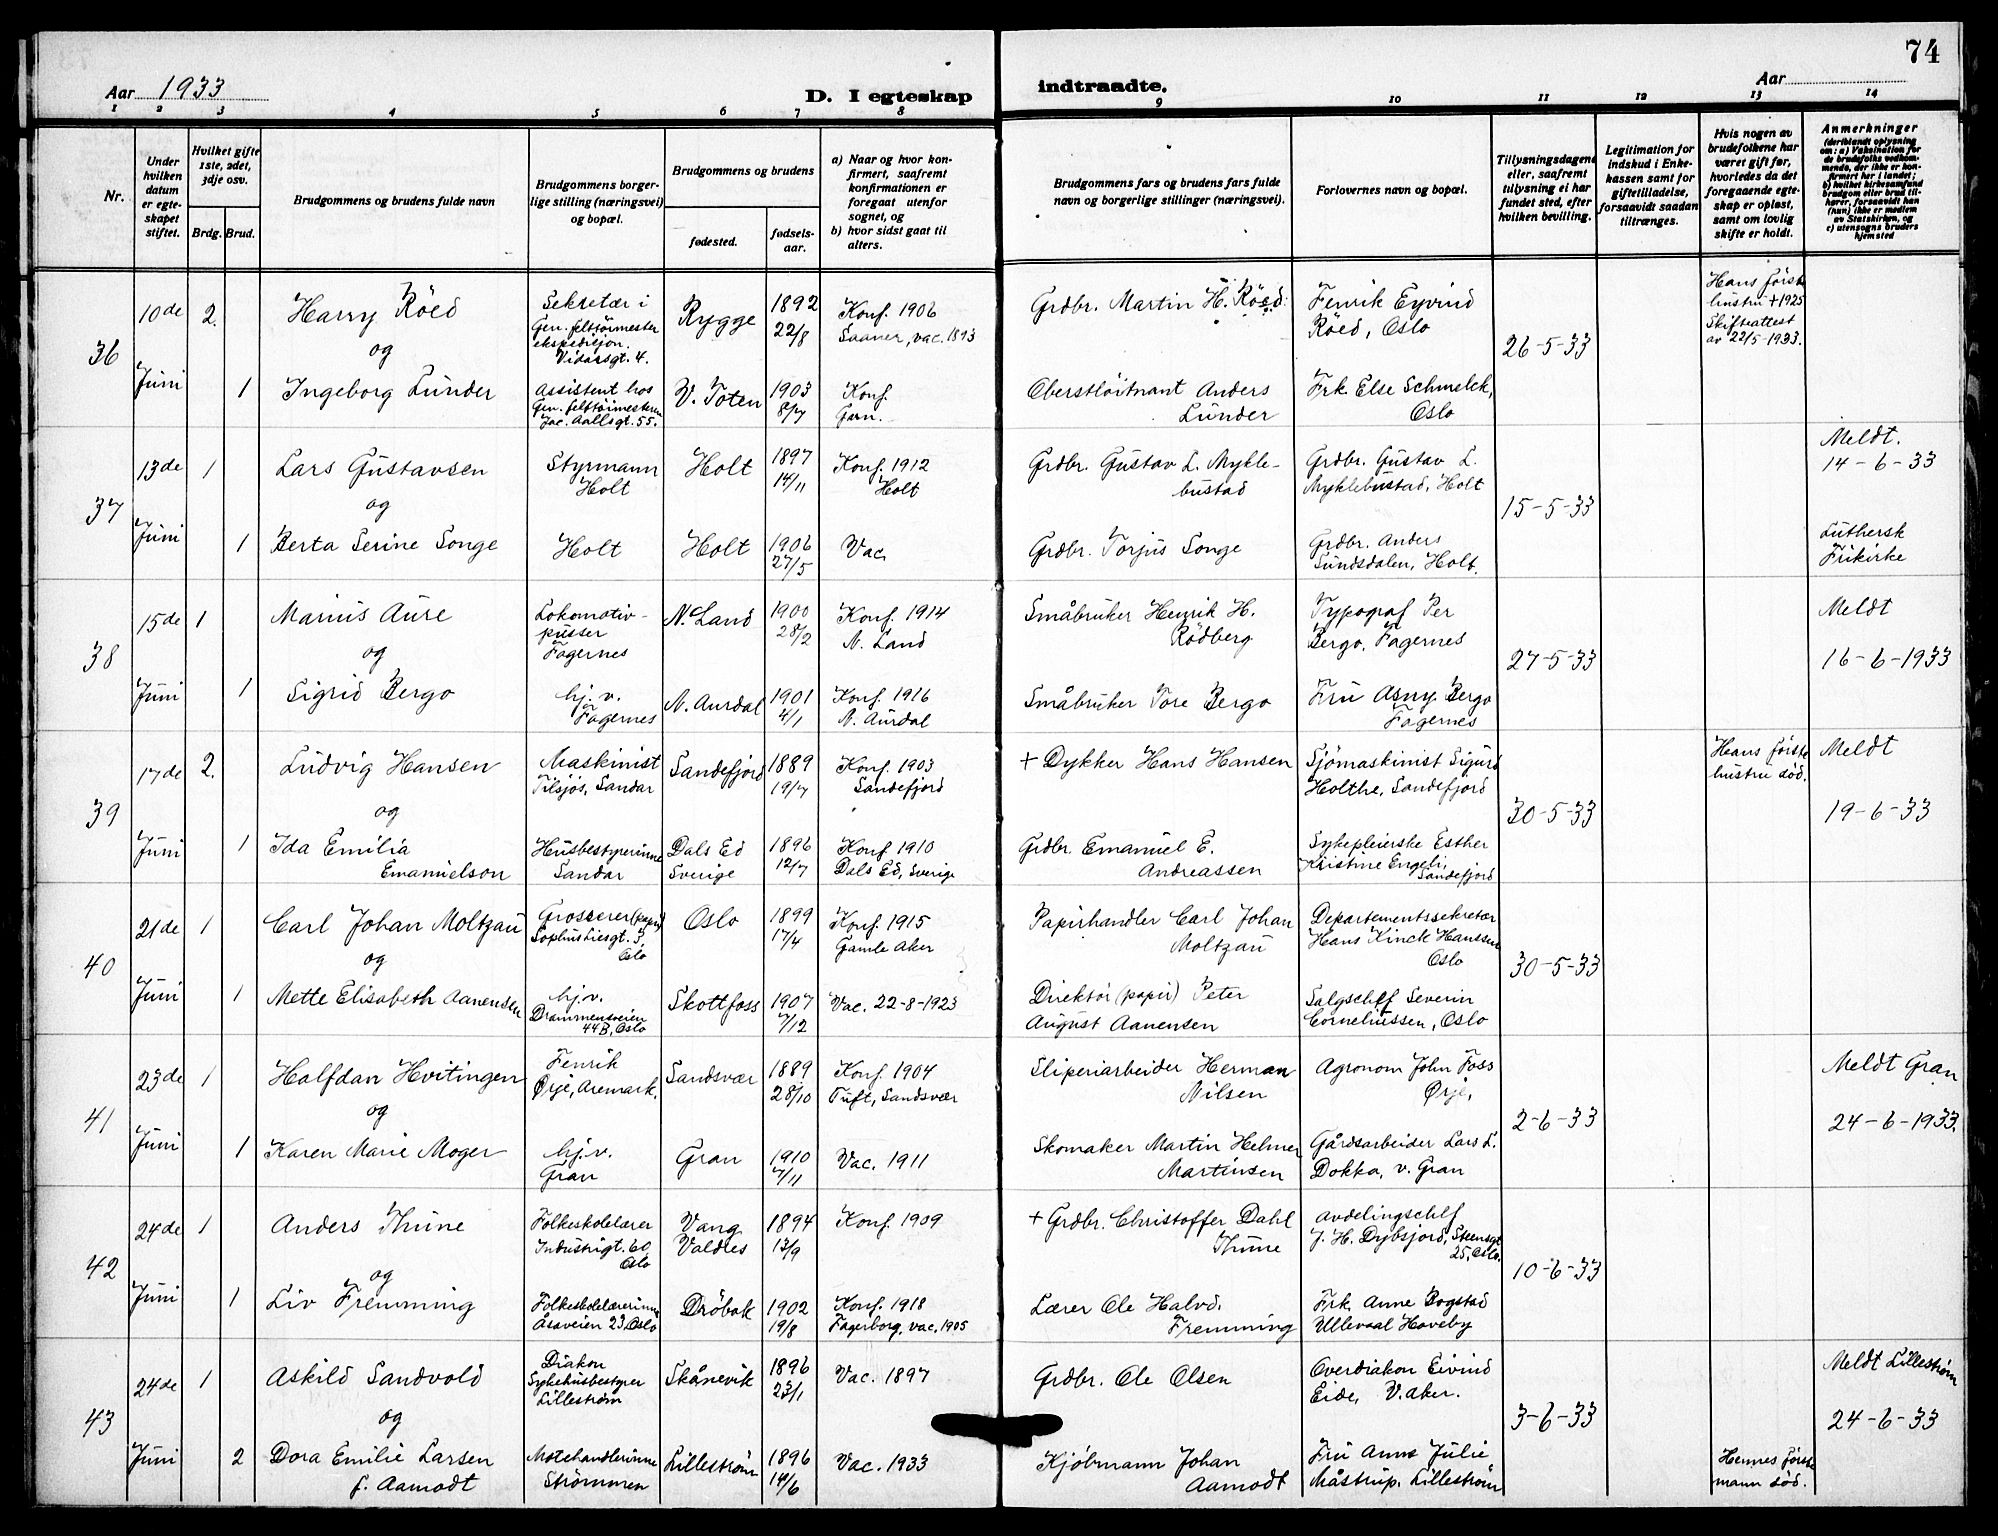 74
Aar 1933
D. I egteskap
indtraadte.
Aar
1 2 3 4 5 6 7 8 9 10 11 12 13 14
Nr.
Under hvilken datum er egteskapet stiftet.
Hvilket gifte 1ste, 2det, 3dje osv.
Brdg. Brud.
Brudgommens og brudens fulde navn
Brudgommens borgerlige stilling (næringsvei) og bopæl.
Brudgommens og brudens
fødested.
fødselsaar.
a) Naar og hvor konfirmert, saafremt konfirmationen er foregaat utenfor sognet, og
b) hvor sidst gaat til alters.
Brudgommens fars og brudens fars fulde navn og borgerlige stillinger (næringsvei).
Forlovernes navn og bopæl.
Tillysningsdagene eller, saafremt tilysning ei har fundet sted, efter hvilken bevilling.
Legitimation for indskud i Enkekassen samt for giftetilladelse, forsaavidt saadan tiltrænges.
Hvis nogen av brudefolkene har været gift før, hvorledes da det foregaaende egteskap er opløst, samt om lovlig skifte er holdt.
Anmerkninger (deriblandt oplysning om: a) Vaksination for de brudefolks vedkommende, der ikke er konfirmert her i landet; b) hvilket kirkesamfund brudgom eller brud tilhører, forsaavidt han (hun) ikke er medlem av Statskirken, og c) utensogns bruders hjemsted
36
10de Juni
2.
Harry Röed
og
Sekretær i
Gen. felttöimester
ekspedisjon.
Vidarsgt. 4.
Rygge
1892
22/8
Konf. 1906
Saaner, vac. 1893
Grdbr. Martin H. Röed
Fenrik Eyvind
Röed, Oslo
26-5-33
Hans første
hustru + 1925
Skifteattest
av 22/5-1933.
1
Ingeborg Lunder
Assistent hos
Gen. felttöimesteren
Jac. Aallsgt. 55.
V. Toten
1903
8/7
Konf.
Garn.
Oberstlöitnant Anders
Lunder
Frk. Else Schmelck,
Oslo
37
13de Juni
1
Lars Gustavsen
og
Styrmann
Holt
Holt
1897
14/11
Konf. 1912
Holt
Grdbr. Gustav L. Mykle-
bustad
Grdbr. Gustav L.
Myklebustad, Holt
15-5-33
Meldt.
14-6-33
1
Berta Serine Songe
Holt
Holt
1906
27/5
Vac.
Grdbr. Torjus Songe
Grdbr. Anders
Sundsdalen, Holt.
Luthersk
Frikirke
38
15de Juni
1
Marius Aure
og
Lokomotiv-
pusser
Fagernes
N. Land
1900
28/2
Konf. 1914
N. Land
Småbruker Henrik H.
Rödberg
Typograf Per
Bergo, Fagernes
27-5-33
Meldt
16-6-1933
1
Sigrid Bergo
hj. v.
Fagernes
N. Aurdal
1901
4/1
Konf. 1916
N. Aurdal
Småbruker Tore Bergo
Fru Asny Bergo
Fagernes
39
17de Juni
2.
Ludvig Hansen
og
Maskinist
Tilsjös, Sandar
Sandefjord
1889
19/7
Konf. 1903
Sandefjord
+ Dykker Hans Hansen
Sjömaskinist Sigurd
Holthe, Sandefjord
30-5-33
Hans første
hustru död.
Meldt
19-6-33
1
Ida Emilia
Emanuelson
Husbestyrerinne
Sandar
Dals Ed
Sverige
1896
12/7
Konf 1910
Dals Ed, Sverige
Grdbr. Emanuel E.
Andreassen
Sykepleierske Esther
Kristine Engeli,
Sandefjord
40
21de Juni
1
Carl Johan Moltzau
og
Grosserer (papir)
Sophus Liesgt. 3,
Oslo
Oslo
1899
17/4
Konf. 1915
Gamle Aker
Papirhandler Carl Johan
Moltzau
Departementssekretær
Hans Kinck Hanssen
Oslo
30-5-33
1
Mette Elisabeth Aanensen
hj. v.
Drammensveien
44B, Oslo
Skotfoss
1907
7/12
Vac. 22-8-1923
Direktör (papir) Peter
August Aanensen
Salgschef Severin
Corneliussen, Oslo
41
23de Juni
1
Halfdan Hvitingen
og
Fenrik
Ørje, Aremark.
Sandsvær
1889
28/10
Konf. 1904
Tuft, Sandsvær
Sliperiarbeider Herman
Nilsen
Agronom John Foss
Ørje,
2-6-33
Meldt Gran
24-6-1933.
1
Karen Marie Moger
hj. v.
Gran
Gran
1910
7/11
Vac. 1911
Skomaker Martin Helmer
Martinsen
Gårdsarbeider Lars L.
Dokka, v. Gran
42
24de Juni
1
Anders Thune
og
Folkeskolelærer
Industrigt. 60
Oslo
Vang
Valdres
1894
13/9
Konf. 1909
+ Grdbr. Christoffer Dahl
Thune
Avdelingschef
J. H. Dybsjord, Steensgt
25, Oslo.
10-6-33
1
Liv Fremming
Folkeskolelærerinne
Åsaveien 23, Oslo
Dröbak
1902
19/8
Konf. 1918
Fagerborg, vac. 1905
Lærer Ole Halvd.
Fremming
Frk. Anne Bogstad
Ullevaal Haveby
43
24de Juni
1
Askild Sandvold
og
Diakon
Sykehusbestyrer
Lillestrøm
Skånevik
1896
23/1
Vac. 1897
Grdbr. Ole Olsen
Overdiakon Eivind
Eide, V. Aker.
3-6-33
Meldt Lillestrøm
24-6-33
2
Dora Emilie Larsen
f. Aamodt
Motehandlerinne
Strømmen
Lillestrøm
1896
14/6
Vac. 1933
Kjöbmann Johan
Aamodt
Fru Anna Julie
Måstrup, Lillestrøm
Hennes første
mann död.